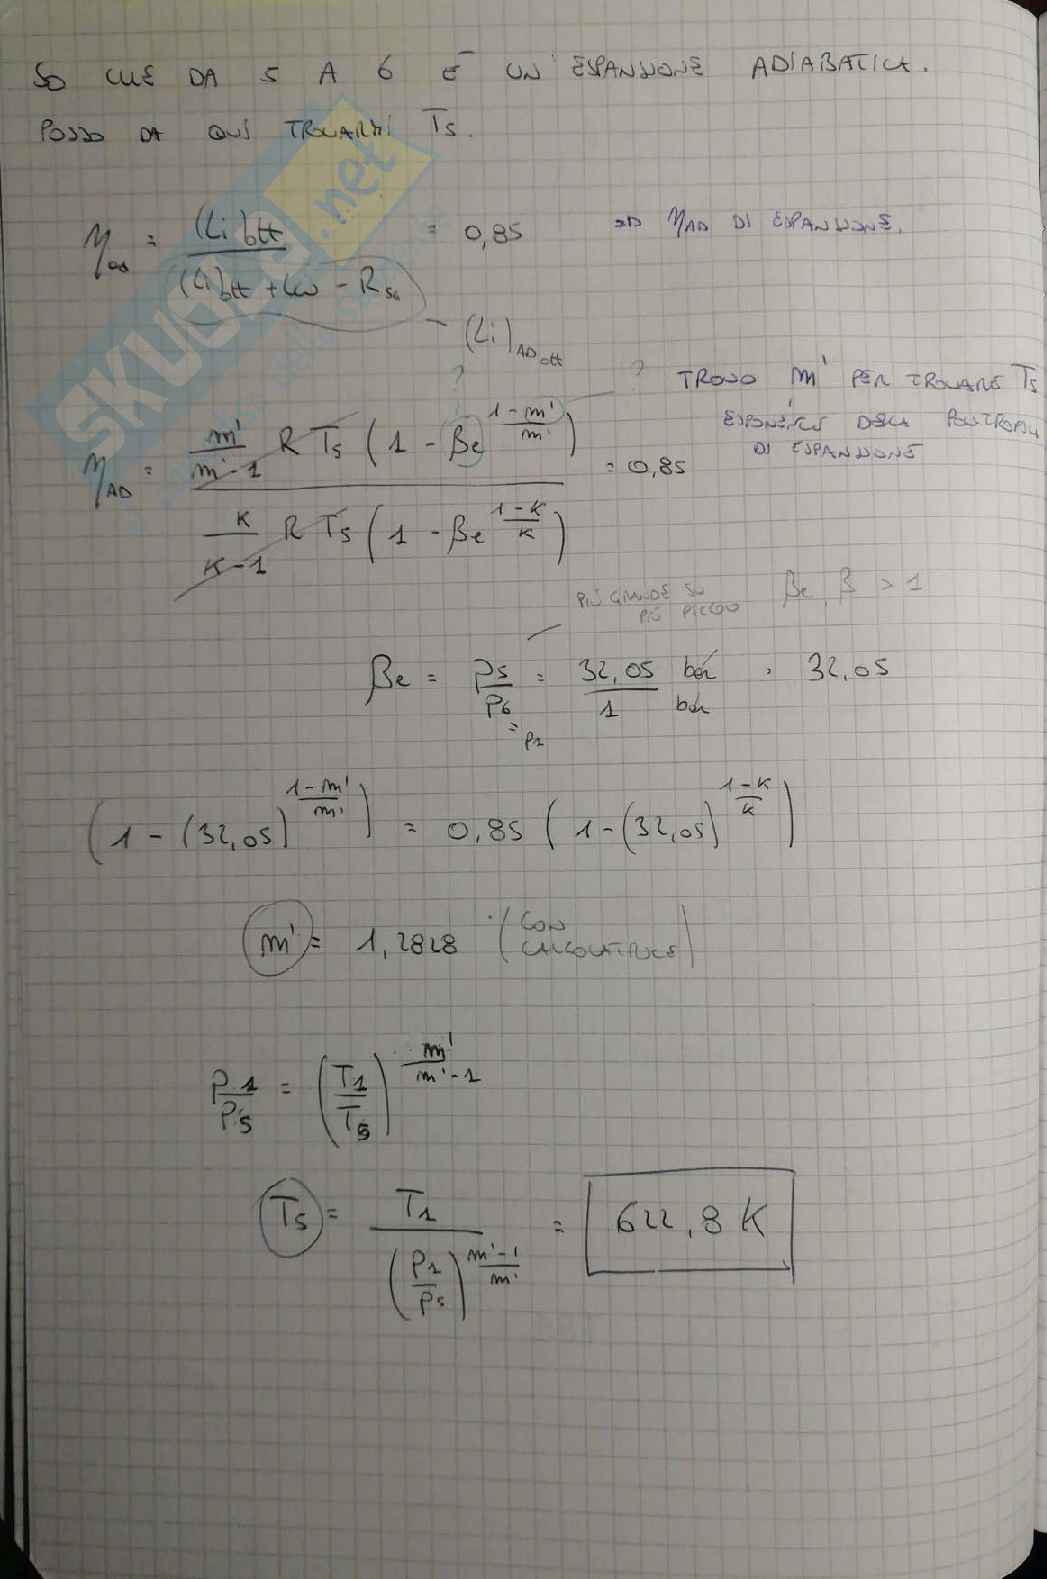 SO CHE DA 5 A 6 È UN ESPANSIONE ADIABATICA.
POSSO DA QUI TROVARMI T5.
SKUOLA.net
ηad = (Li)ott / ((Li)ott + Lw - R56) = 0,85 => ηAD DI ESPANSIONE.
(Li)AD ott
? ? TROVO m' PER TROVARE T5
ESPONENTE DELLA POLITROPICA
DI ESPANSIONE
ηAD = m'/(m'-1) R T5 (1 - βe^((1-m')/m')) / K/(K-1) R T5 (1 - βe^((1-K)/K)) = 0,85
PIÙ GRANDE SU PIÙ PICCOLO βe, β > 1
βe = P5/P6 = 32,05 bar / 1 bar = 32,05
= P1
(1 - (32,05)^((1-m')/m')) = 0,85 (1 - (32,05)^((1-K)/K))
m' = 1,2828 (CON CALCOLATRICE)
P1/P5 = (T1/T5)^(m'/(m'-1))
T5 = T1 / (P1/P5)^((m'-1)/m') = 622,8 K